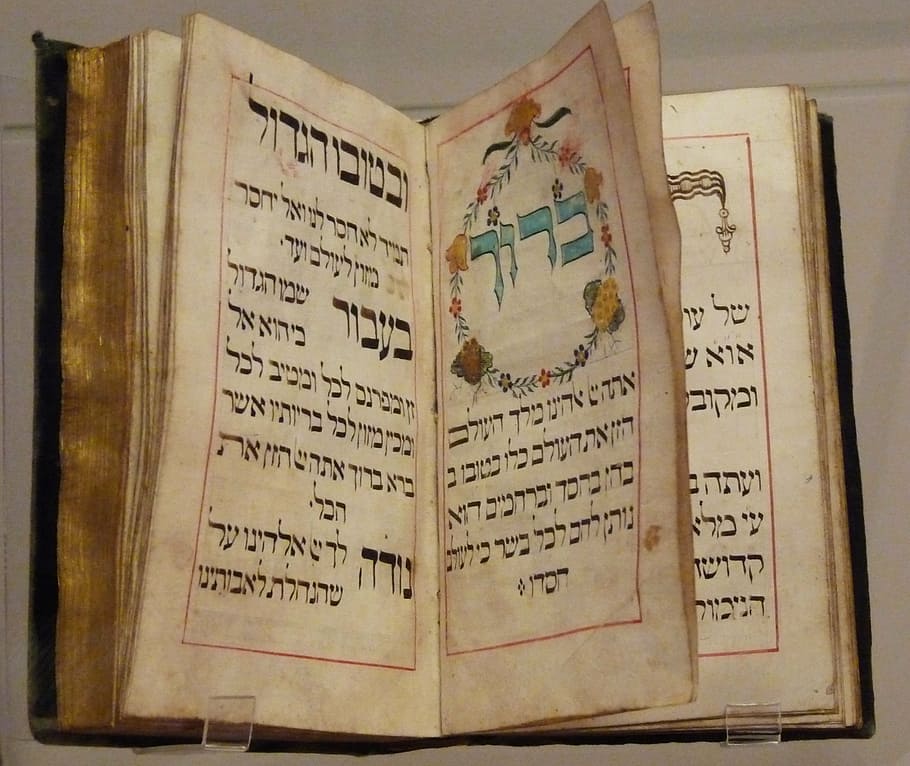 של
ועתה
מלא
ברוך
אתה יי אלהינו מלך העולם
הזן את העולם כלו בטובו ב
בחן בחסד וברחמים הוא
נותן לחם לכל בשר כי לעולם
חסדו
ובטובו הגדול
תמיד לא חסר לנו ואל יחסר
מזון לעולם ועד׳
בעבור שמו הגדול
כי הוא אל
זן ומפרנס לכל ומטיב לכל
ומכין מזון לכל בריותיו אשר
ברא ברוך אתה יי הזן את
הכל׳
נודה לך יי אלהינו על
שהנחלת לאבותינו